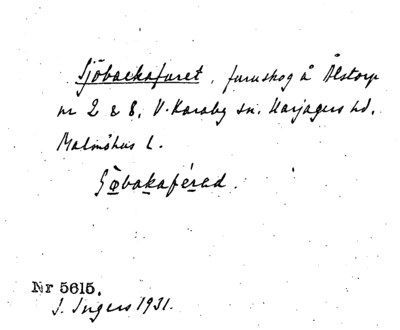 Sjöbackafuret, furuskog å Ålstorp
nr 2 & 8, V. Karaby sn. Harjagers hd,
Malmöhus l.
Söbakaférad.
Nr 5615.
I. Ingers 1931.